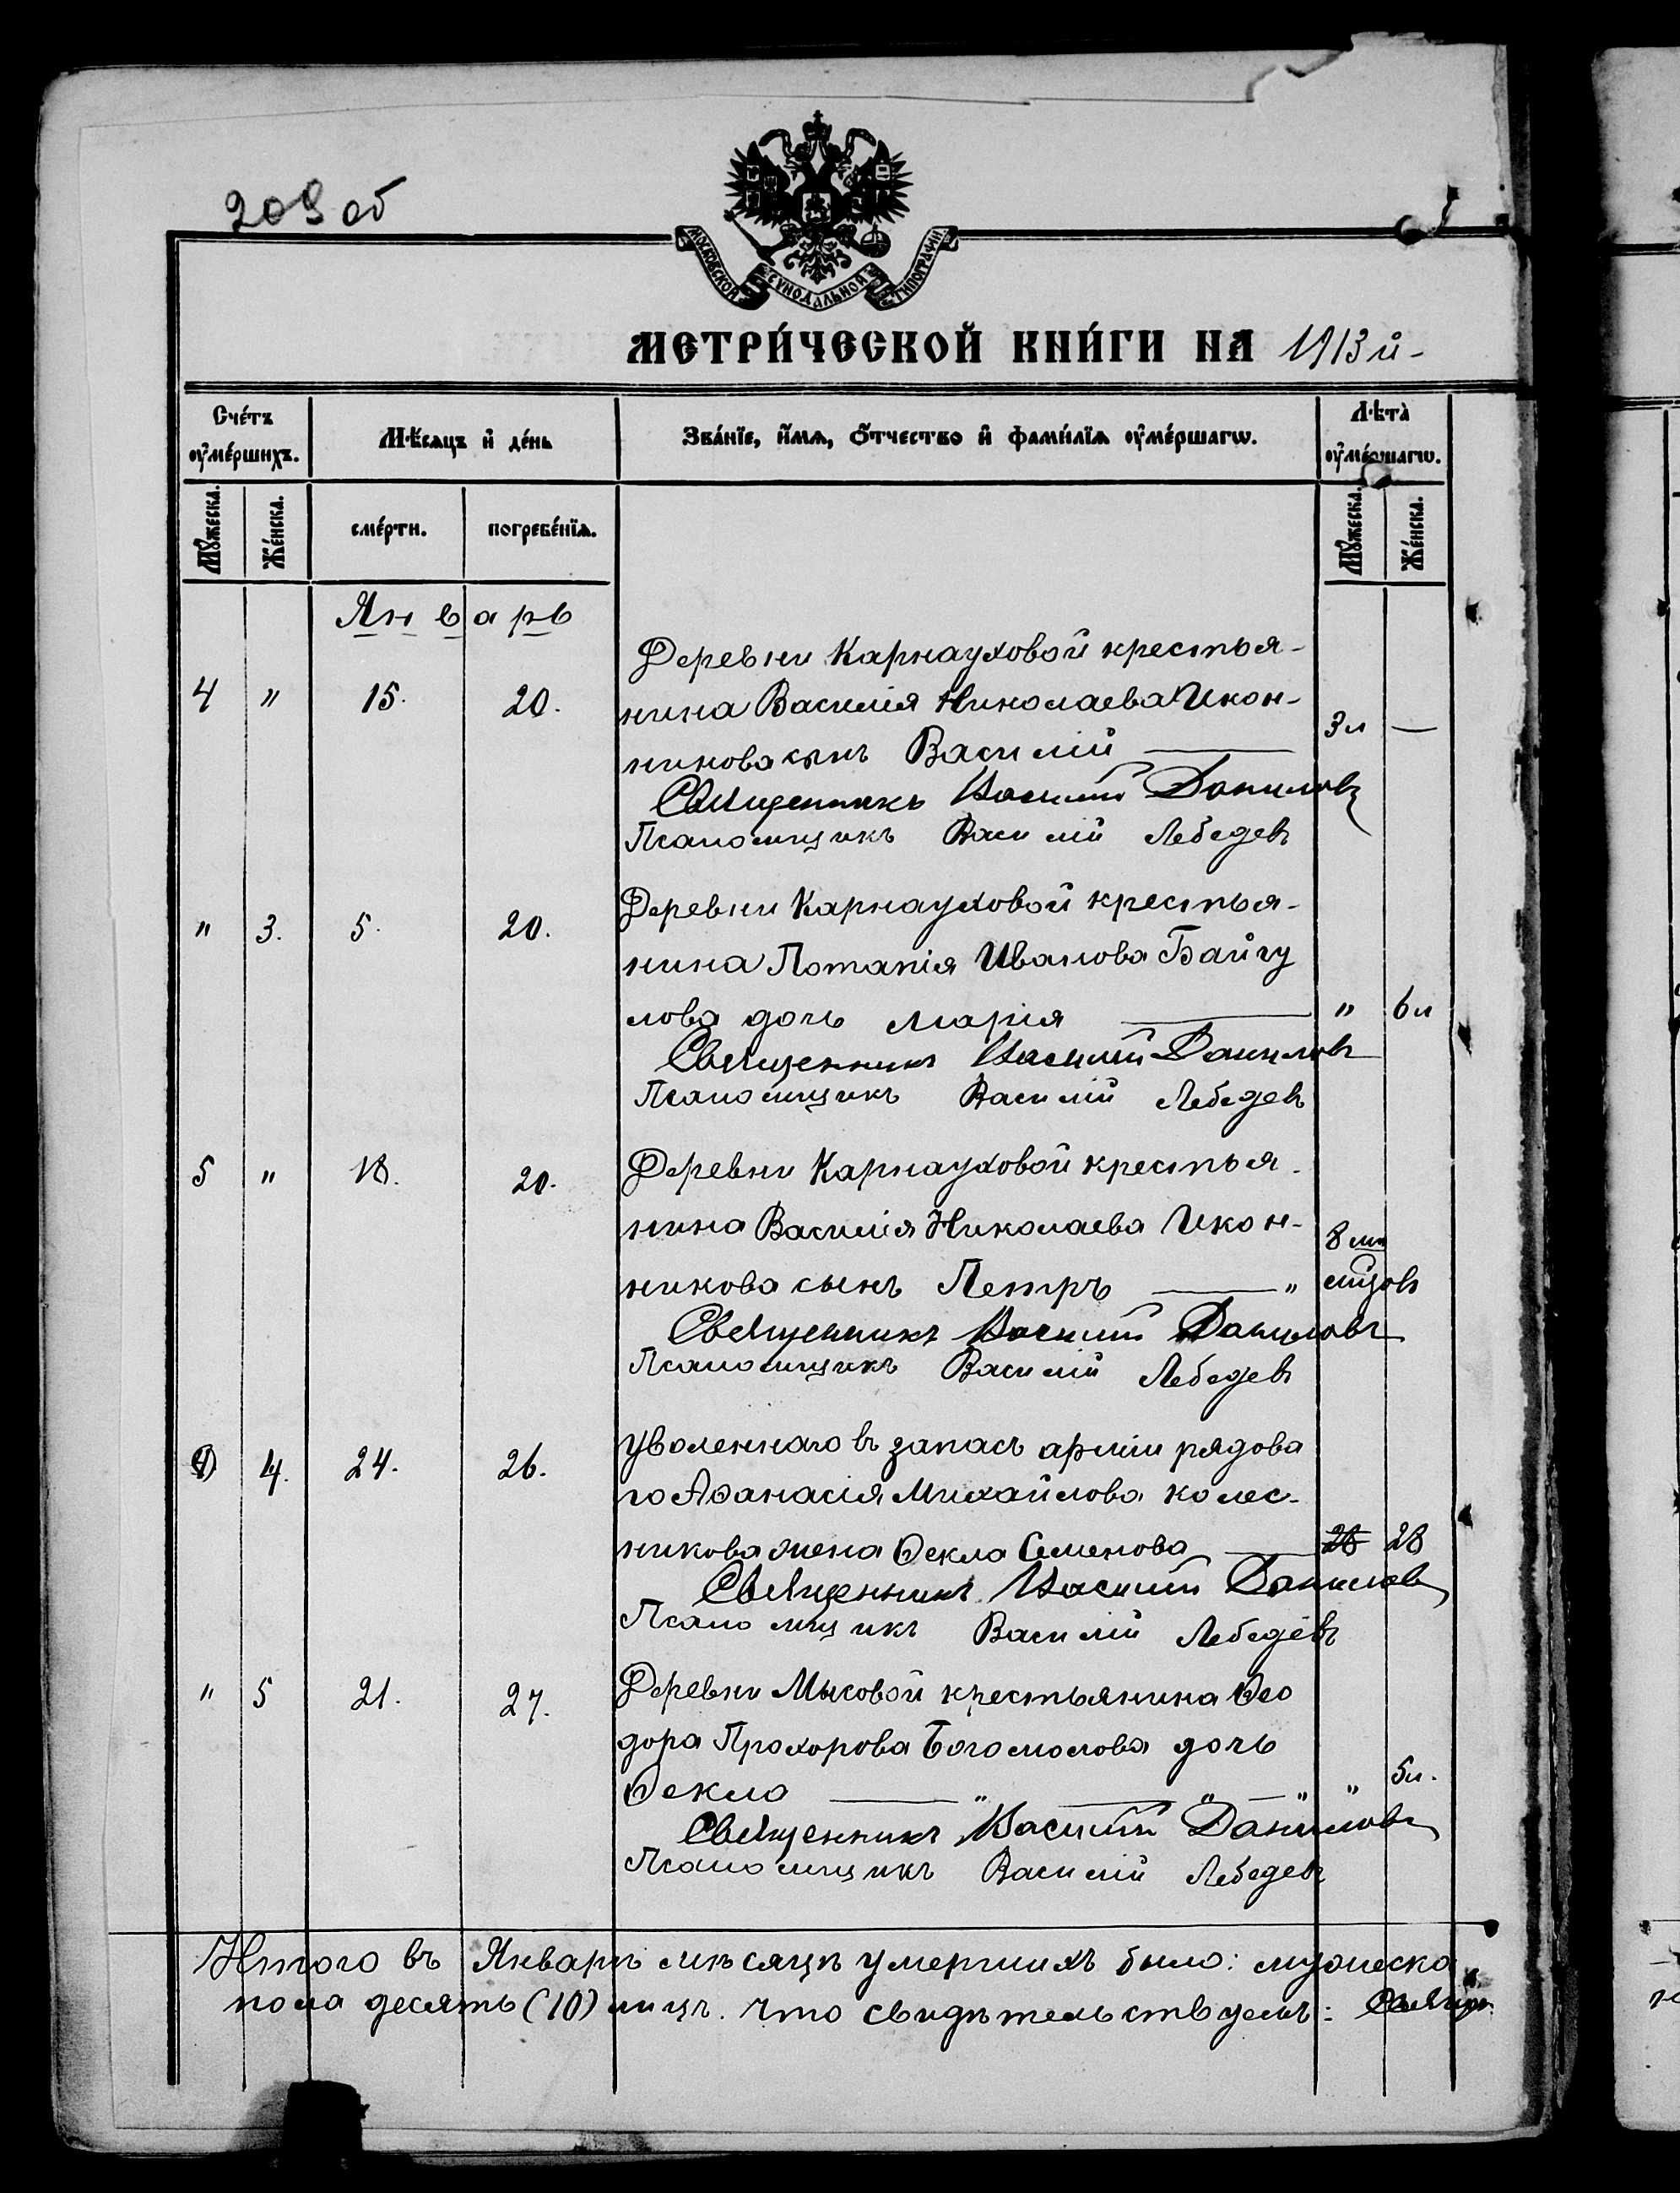 209 об
МОСКОВСКОЙ СѴНОДАЛЬНОЙ ТИПОГРАФІИ
МЕТРИ́ЧЕСКОЙ КНИ́ГИ НА 1913 й -
Сче́тъ ᲂу҆ме́ршихъ.
Мѣ́сѧцъ и҆ де́нь
Зва́нїе, и҆́мѧ, ѻ҆́тчество и҆ фами́лїѧ ᲂу҆ме́ршагѡ.
Лѣта̀ ᲂу҆ме́ршагѡ.
Мꙋ́жеска.
Же́нска.
сме́рти.
погребе́нїѧ.
Мꙋ́жеска.
Же́нска.
Январь
Деревни Карнауховой крестья-
4 " 15. 20. нина Василія Николаева Икон-
никова сынъ Василій — 3 л —
Священникъ Василий Даниловъ
Псаломщикъ Василій Лебедевъ
Деревни Карнауховой крестья-
" 3. 5. 20. нина Потапія Иванова Байгу
лова дочь Марія — " 6 л
Священникъ Василий Даниловъ
Псаломщикъ Василій Лебедевъ
5 " 18. 20. Деревни Карнауховой крестья-
нина Василія Николаева Икон- 8 мѣ
никова сынъ Петръ — " сяцовъ
Священникъ Василий Даниловъ
Псаломщикъ Василій Лебедевъ
4. 24. 26. Уволеннаго въ запасъ арміи рядова
го Аѳанасія Михайлова Колес-
никова жена Ѳекла Семенова — 28 28
Священникъ Василий Даниловъ
Псаломщикъ Василій Лебедевъ
" 5 21. 27. Деревни Мысовой крестьянина Ѳео
дора Прохорова Богомолова дочь
Ѳекла — " — " — " " 5 л.
Священникъ Василий Даниловъ
Псаломщикъ Василій Лебедевъ
Итого въ Январѣ мѣсяцѣ умершихъ было: мужеска
пола десять (10) лицъ. Что свидѣтельствуемъ: